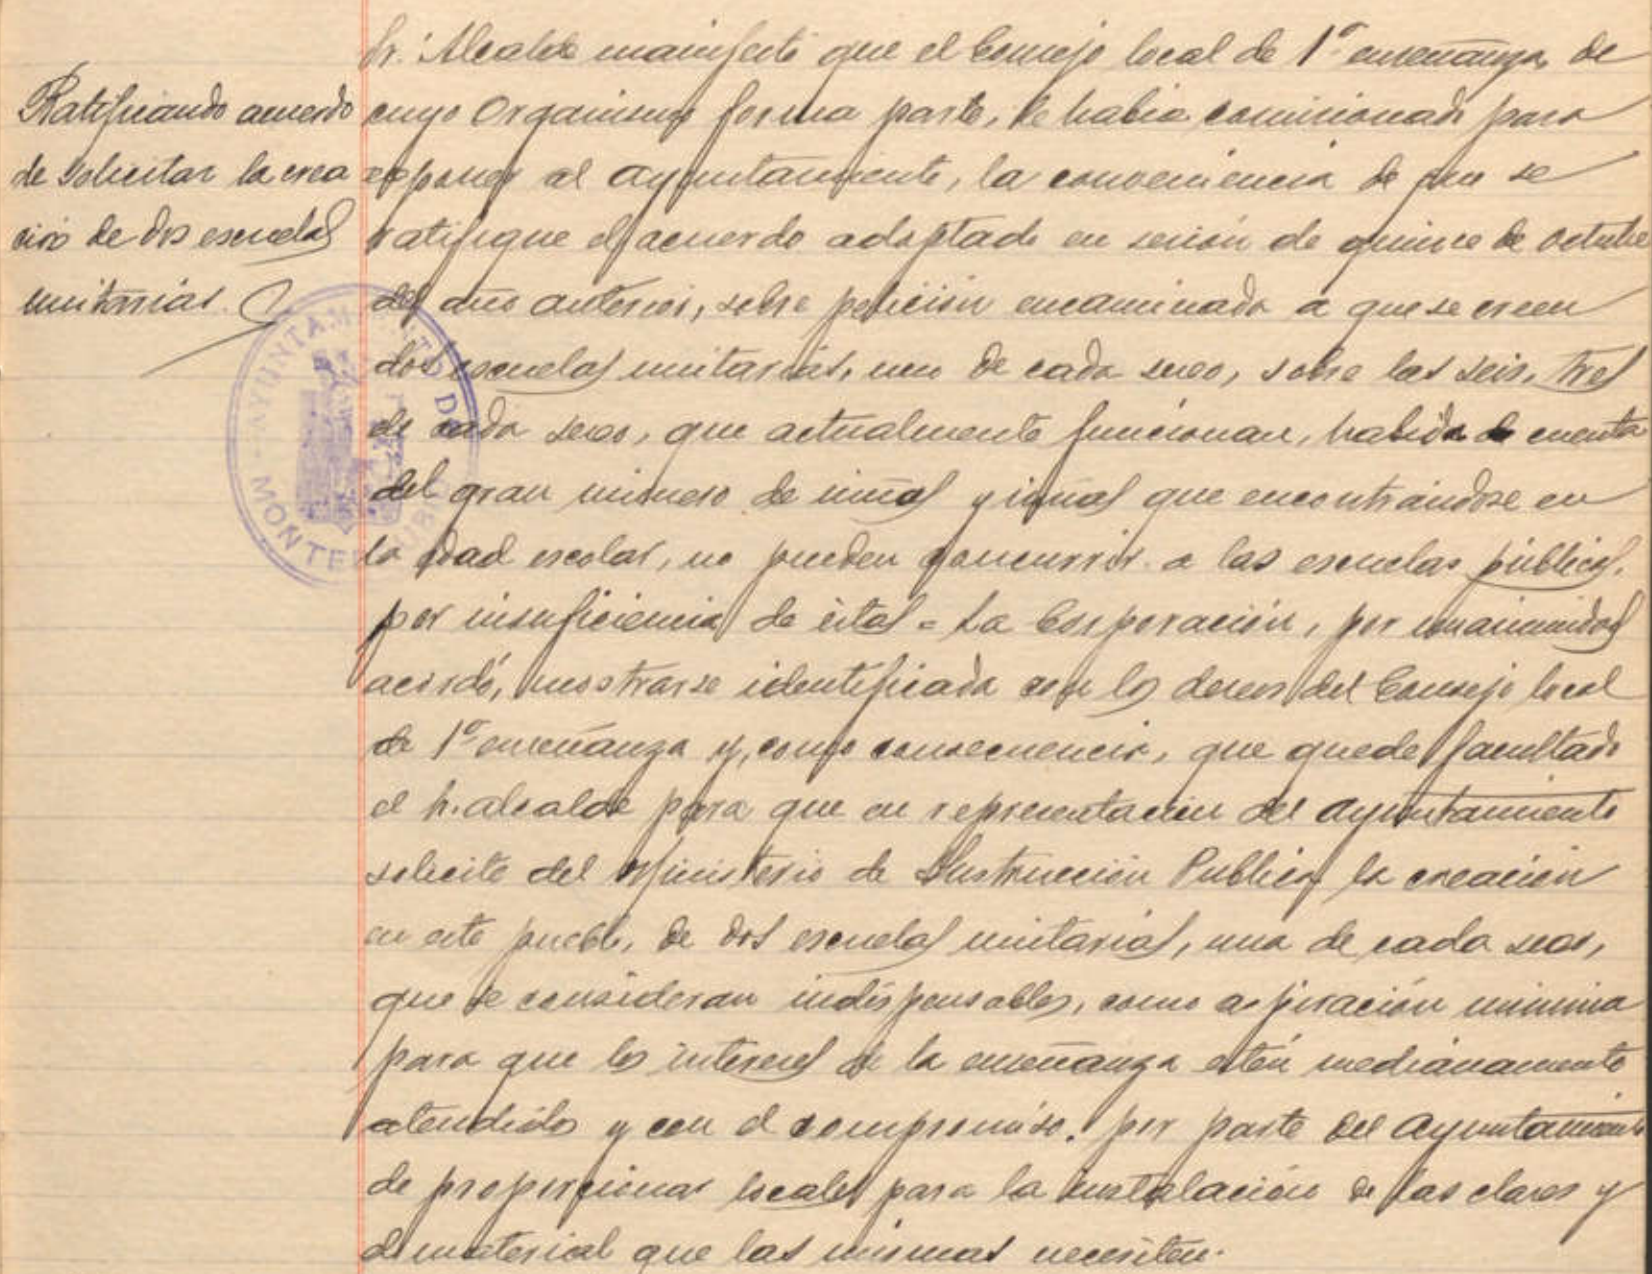 Sr. Alcalde manifestó que el Consejo local de 1ª enseñanza, de
Ratificando acuerdo
de solicitar la crea
ción de dos escuelas
unitarias.
cuyo Organismo forma parte, le habia comisionado para
exponer al Ayuntamiento, la conveniencia de que se
ratifique el acuerdo adoptado en sesión de quince de octubre
del año anterior, sobre petición encaminada a que se creen
dos escuelas unitarias, una de cada sexo, sobre las seis, tres
de cada sexo, que actualmente funcionan, habida de cuenta
del gran número de niños y niñas que encontrándose en
la edad escolar, no pueden concurrir a las escuelas públicas,
por insuficiencia de éstas = La Corporación, por unanimidad
acordó, mostrarse identificada con los deseos del Consejo local
de 1ª enseñanza y, como consecuencia, que quede facultado
el Sr. alcalde para que en representación del Ayuntamiento
solicite del Ministerio de Instrucción Publica la creación
en este pueblo, de dos escuelas unitarias, una de cada sexo,
que se consideran indispensables, como aspiración minima
para que los intereses de la enseñanza estén medianamente
atendidos y con el compromiso, por parte del Ayuntamiento
de proporcionar locales para la instalación de las clases y
de material que las mismas necesiten.
AYUNTAMIENTO DE